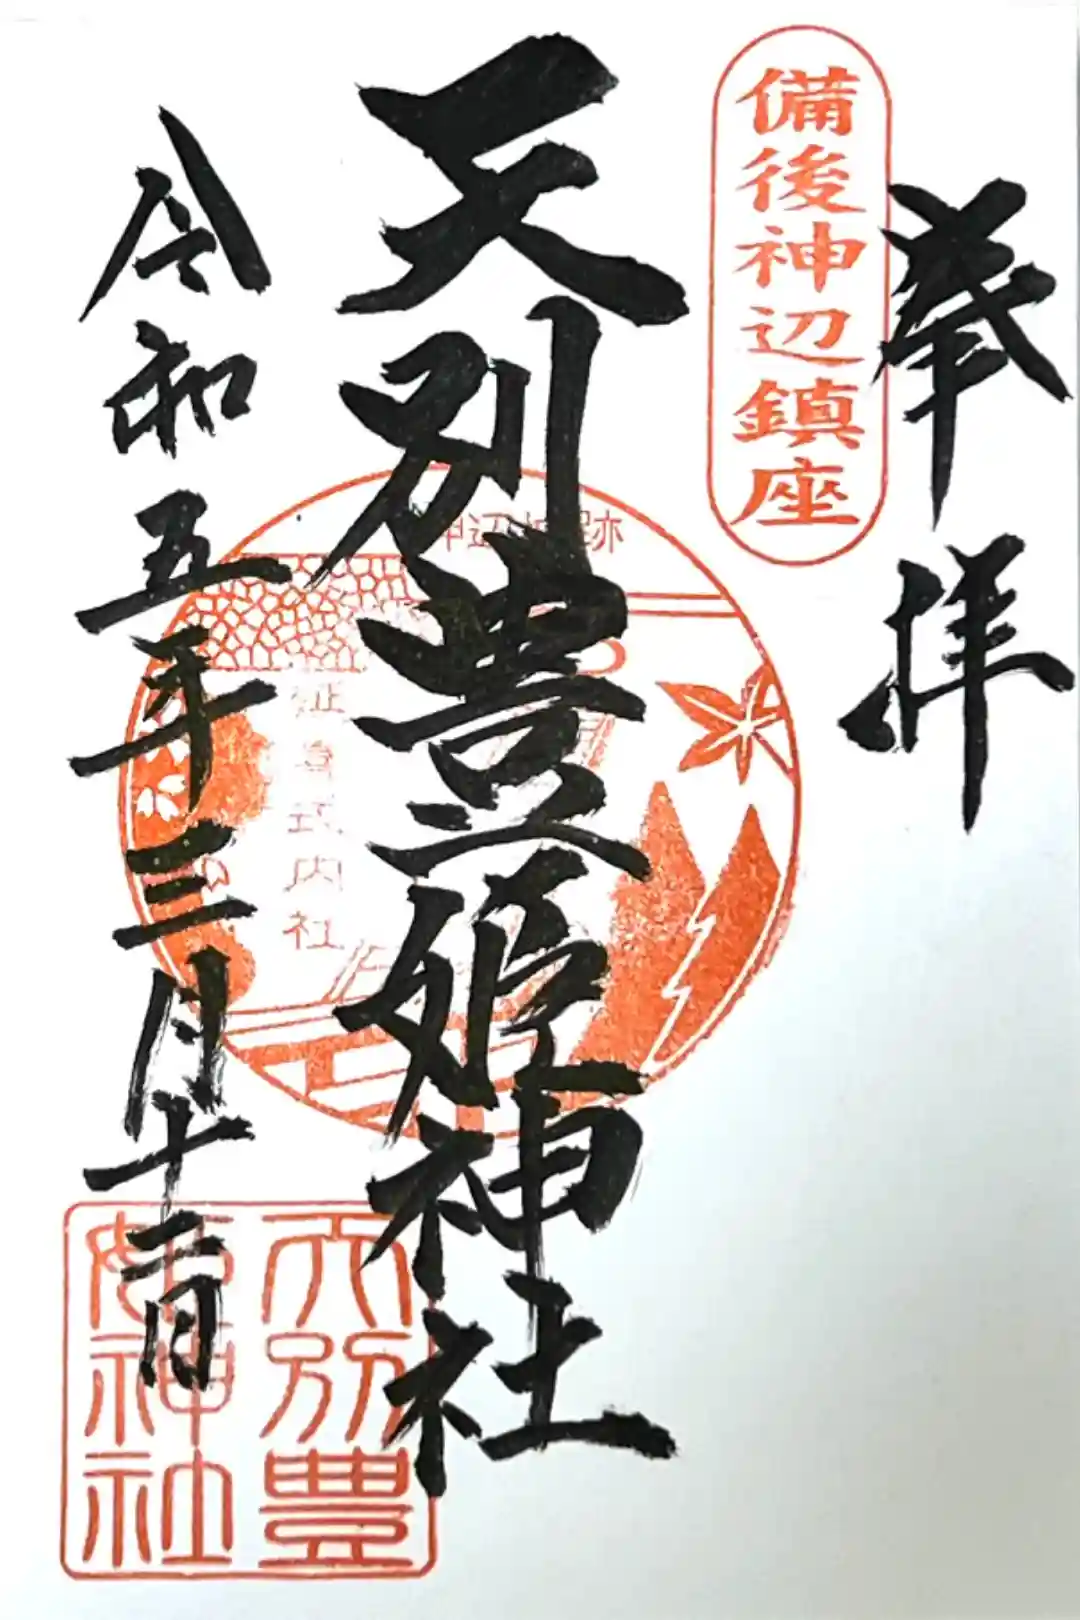 奉拝
備後神辺鎮座
天別豊姫神社
神辺城跡
式内社
令和五年三月十二日
天別豊
姫神社